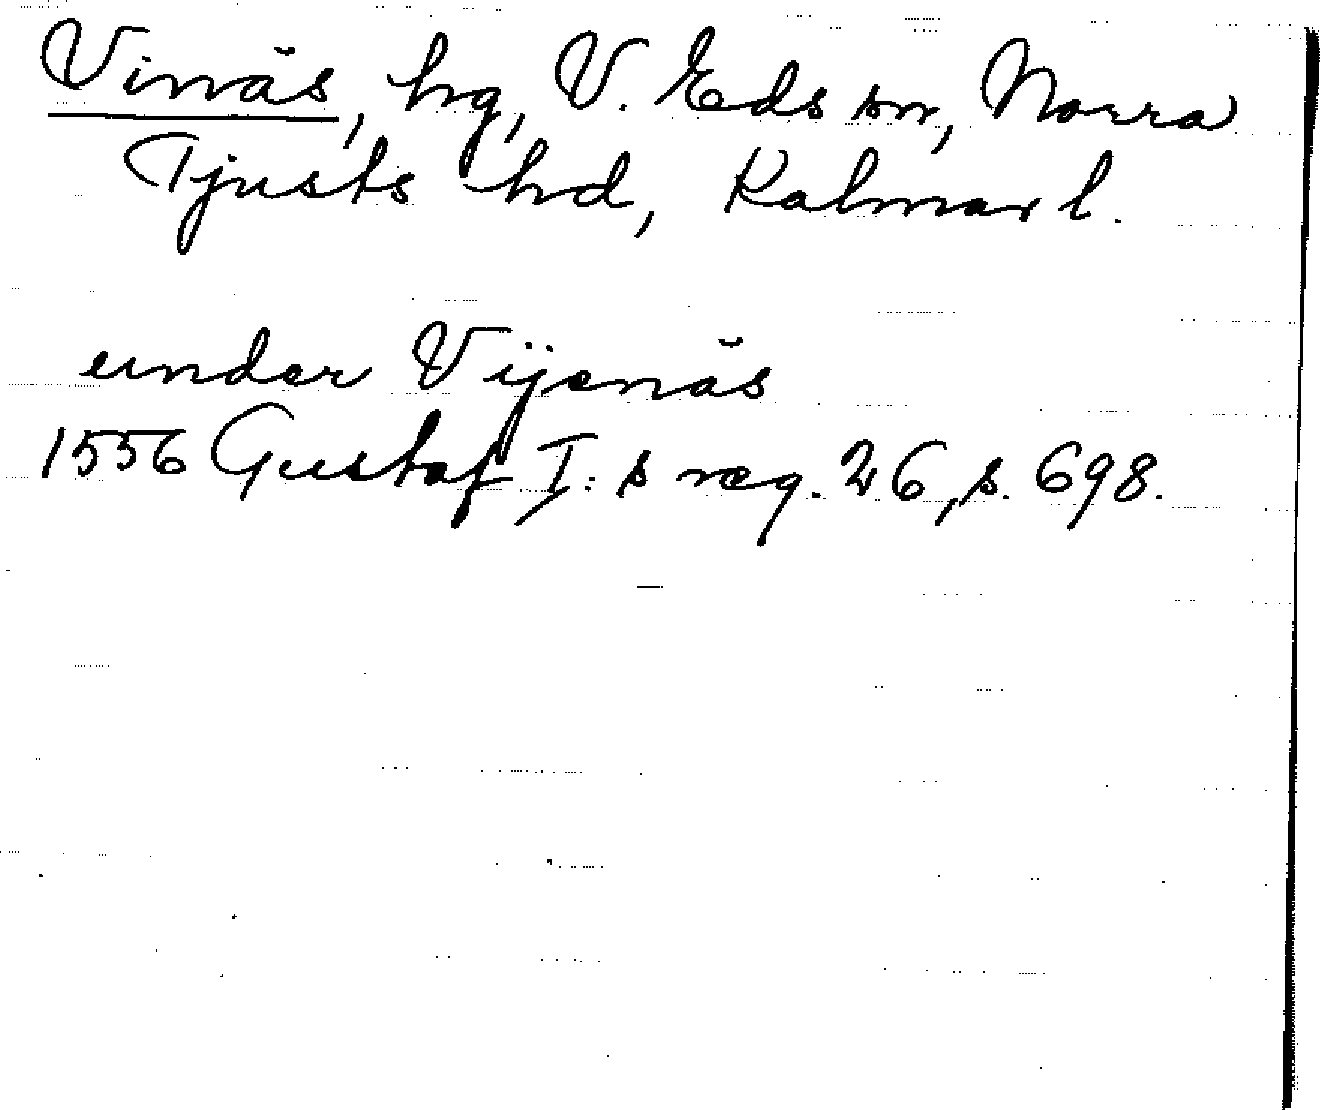 Vinäs, hg, V. Eds sn, Norra
Tjusts hd, Kalmar l.
under Vijenäs
1556 Gustaf I:s reg. 26, s. 698.